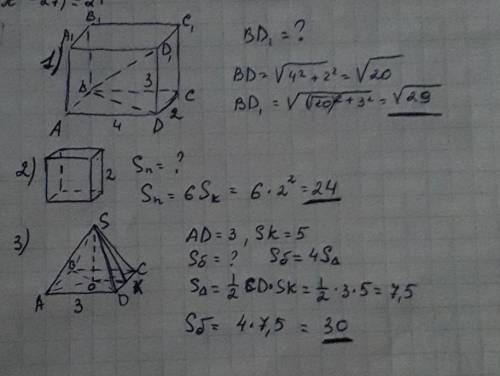 x² - 27) = 21
1)
B₁ C₁
A₁ D₁
B 3 C
2
A 4 D
BD₁ = ?
BD = √4² + 2² = √20
BD₁ = √(√20)² + 3² = √29
2)
2
Sп = ?
Sп = 6Sк = 6 · 2² = 24
3)
S
B C
O K
A 3 D
AD = 3, SK = 5
Sб = ? Sб = 4S△
S△ = 1/2 CD · SK = 1/2 · 3 · 5 = 7,5
Sб = 4 · 7,5 = 30